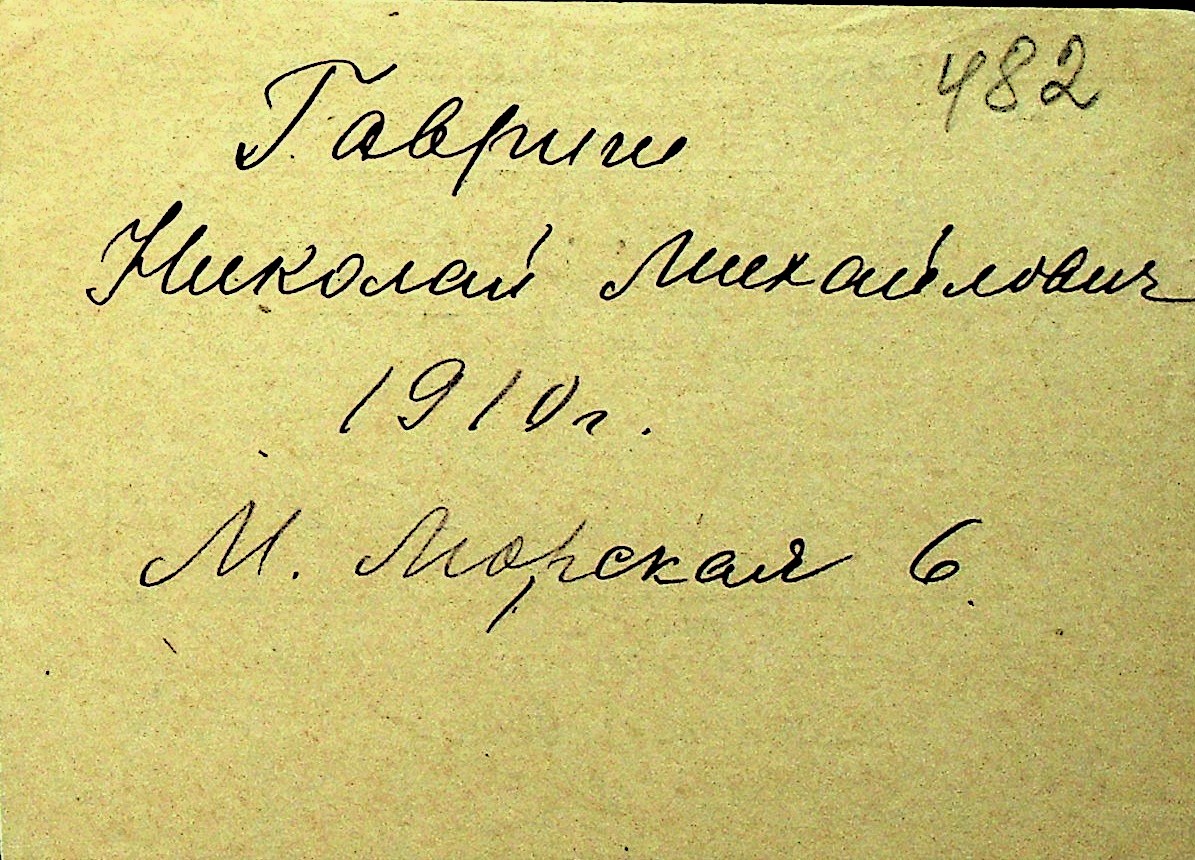 482
Гавриш
Николай Михайлович
1910г.
М. Морская 6.